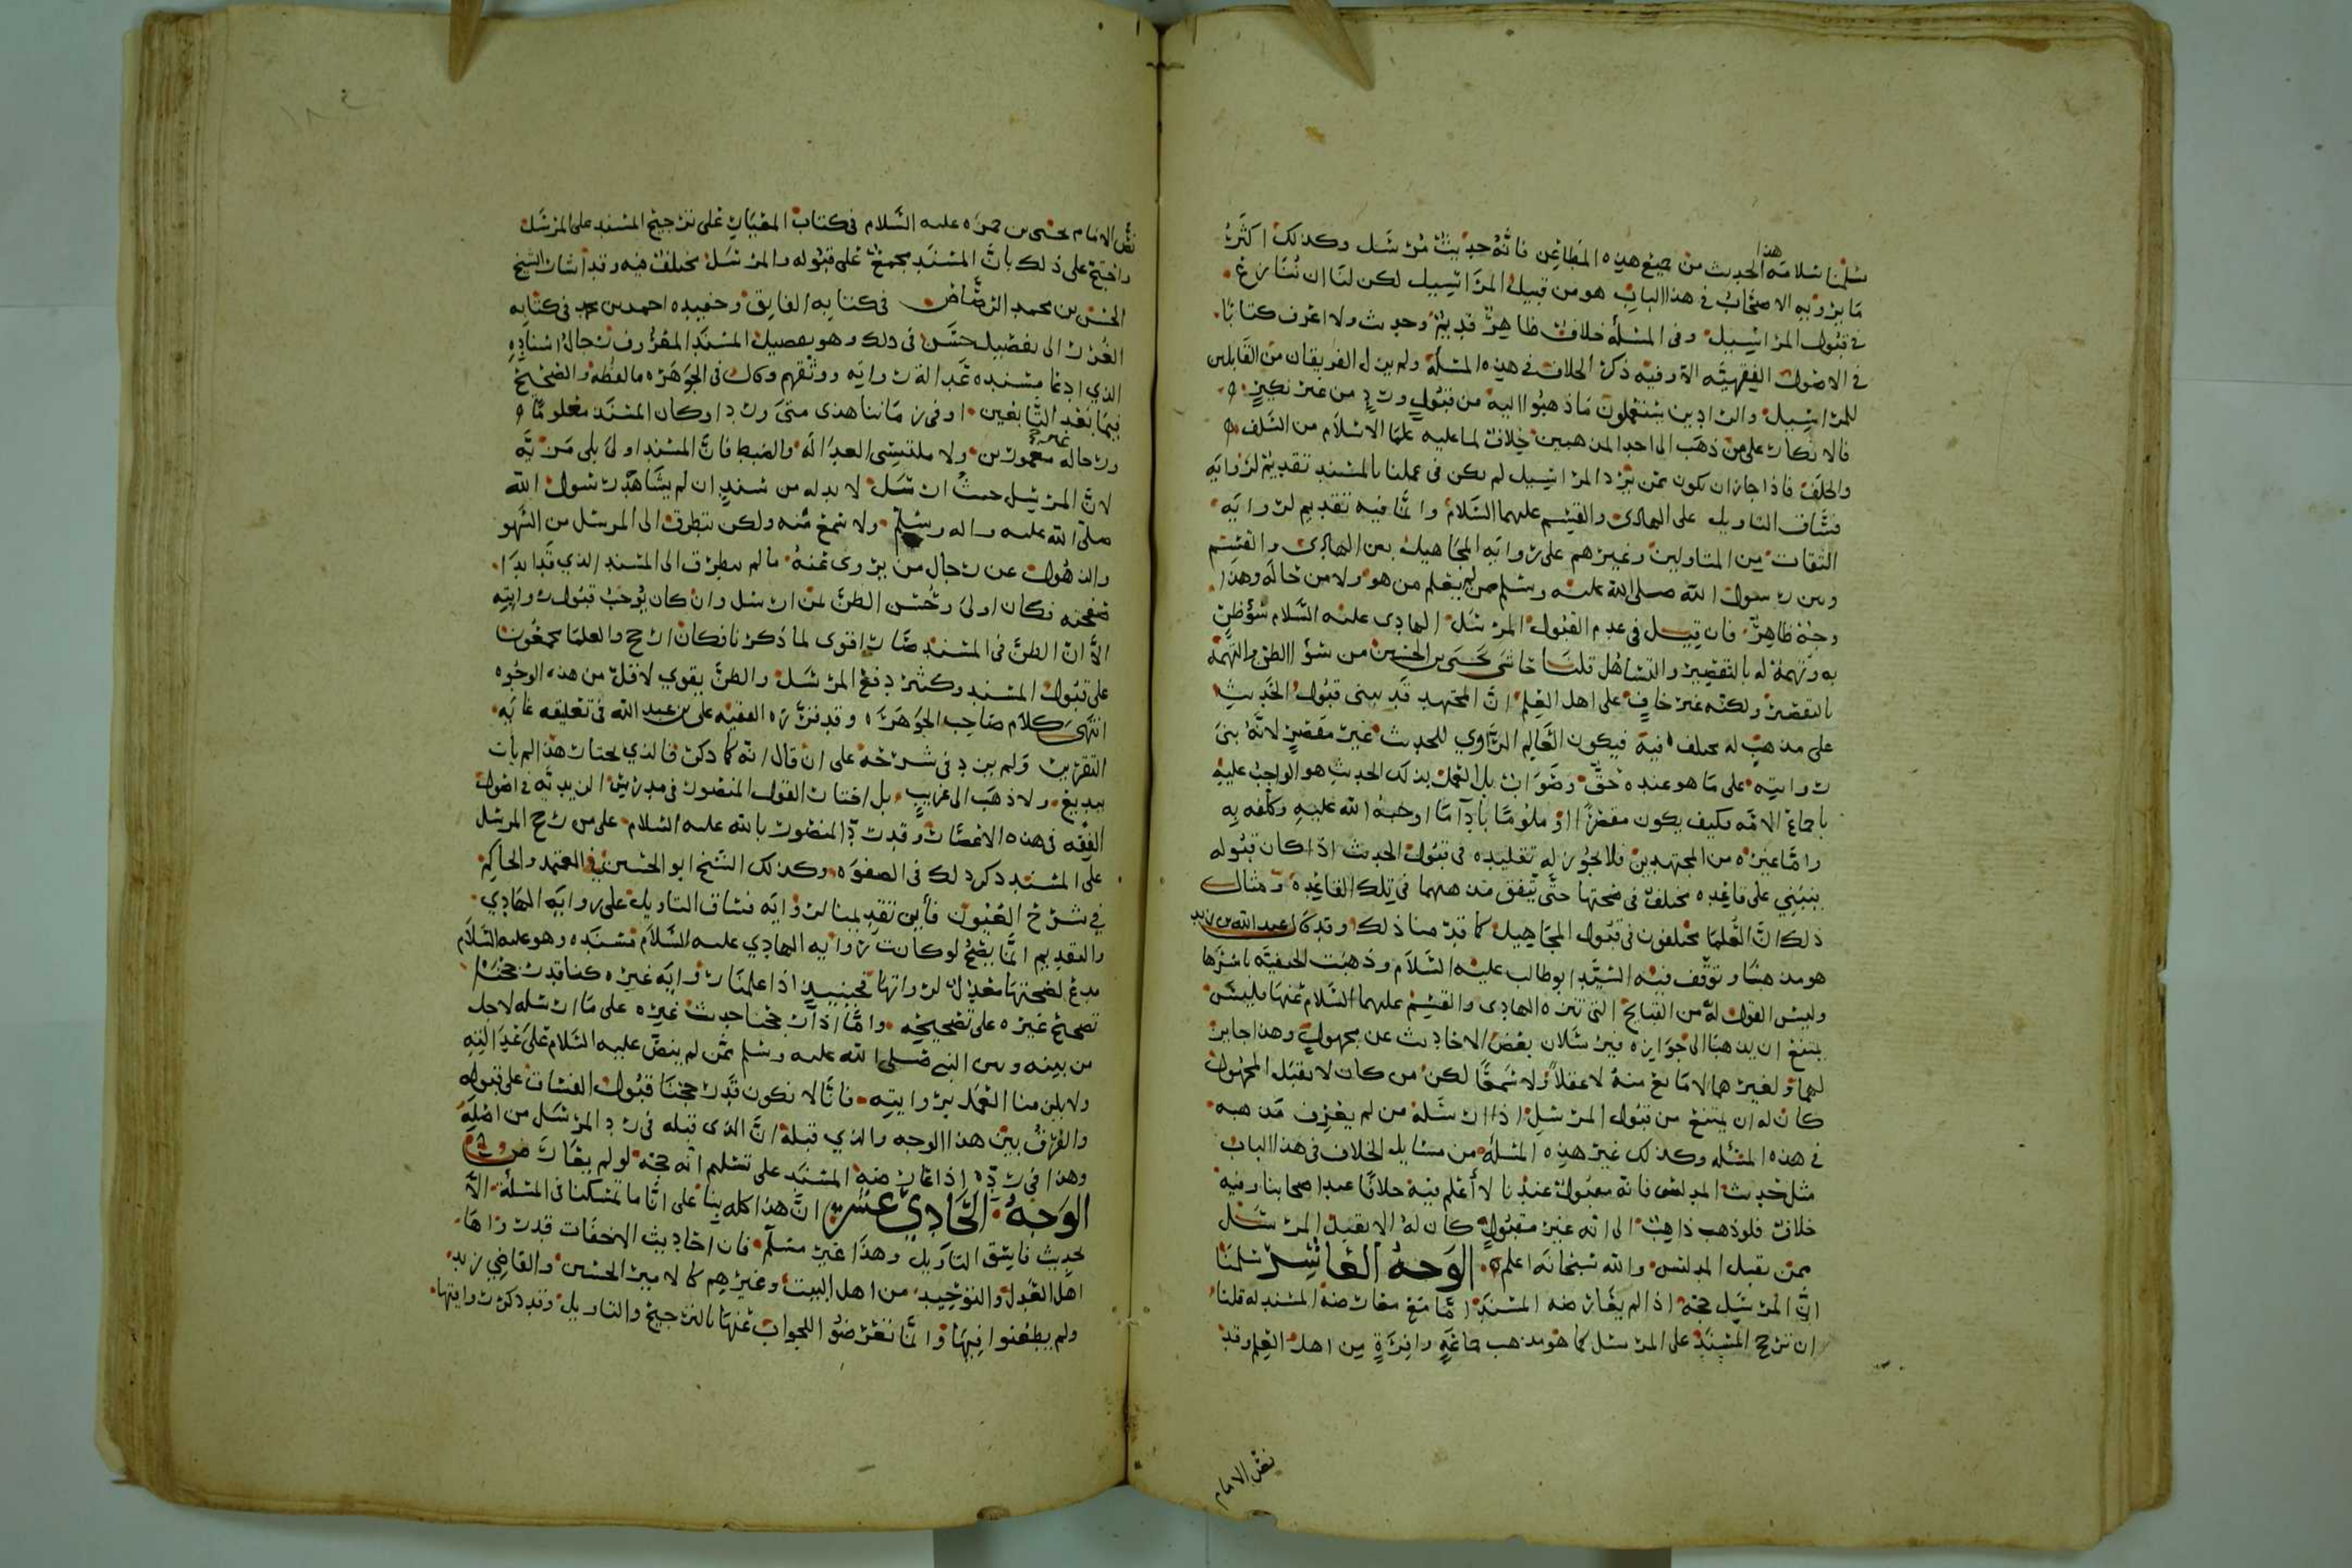 سلمنا سلامة هذا الحديث من جميع هذه المطاعن فانه حديث مرسل وكذلك اكثر
ما يرويه الاصحاب في هذا الباب هو من قبيل المراسيل لكن لنا ان ننازع
في قبول المراسيل وفي المسلة خلاف ظاهر قديم وحديث ولا اعرف كتابا
في الاصول الفقهية الا وفيه ذكر الخلاف في هذه المسئلة ولم يزل الفريقان من القابلين
للمراسيل والرادين يستعملون ما ذهبوا اليه من قبول ورد من غير نكير
فالانكار على من ذهب الى احد المذهبين خلاف لما عليه علما الاسلام من السلف
والخلف فاذا جاز ان يكون ممن يرد المراسيل لم يكن في عملنا بالمسند تقديم لرواية
فساق التاويل على الهادي والقسم عليهما السلام وانما فيه تقديم لرواية
الثقات من المتاولين وغيرهم على رواية المجاهيل بين الهادي والقسم
وبين رسول الله صلى الله عليه وسلم من لم يعلم من هو ولا من حاله وهذا
وجه ظاهر فان قيل في عدم القبول المرسل الهادي عليه السلام سؤ ظن
به وتهمة له بالتقصير والتساهل قلنا حاشى يحيى بن الحسين من سؤ الظن والتهمة
بالتقصير ولكنه غير خاف على اهل العلم ان المجتهد قد يبني قبول الحديث
على مذهب له مختلف فيه فيكون العالم الراوي للحديث غير مقصر لانه بنى
روايته على ما هو عنده حق وصواب بل العمل بذلك الحديث هو الواجب عليه
باجماع الامة فكيف يكون مقصرا او ملوما بادآ ما اوجبه الله عليه وكلفه به
واما غيره من المجتهدين فلا يجوز له تقليده في قبول الحديث اذا كان قبوله
ينبني على قاعده مختلف في صحتها حتى يتفق مذهبهما في تلك القاعدة ومثال
ذلك ان العلما مختلفون في قبول المجاهيل كما قدمنا ذلك وقد كان عبد الله بن زيد
هو مذهبنا وتوقف فيه السيد ابو طالب عليه السلام وذهبت الحنفية باسرها
وليس القول له من القبايح التي تنزه الهادي والقسم عليهما السلام عنها فليس
يمتنع ان يذهبا الى جوازه فيرسلان بعض الاحاديث عن مجهول وهذا جايز
لهما ولغيرهما لا مانع منه لا عقلا ولا سمعا لكن من كان لا يقبل المجهول
كان له ان يمتنع من قبول المرسل اذا ارسله من لم يعرف مذهبه
في هذه المسله وكذلك غير هذه المسلة من مسايل الخلاف في هذا الباب
مثل حديث المدلس فانه مقبول عندنا لا أعلم فيه خلافا عند اصحابنا وفيه
خلاف فلو ذهب ذاهب الى انه غير مقبول كان له الا يقبل المرسل
ممن يقبل المدلس والله سبحانه اعلم الوجه العاشر سلمنا
ان المرسل حجة اذا لم يعارضه المسند اما مع معارضة المسند له قلنا
ان نرجح المسند على المرسل كما هو مذهب جماعة وافرة من اهل العلم وقد
نص الامام
نص الامام يحيى بن حمزه عليه السلام في كتاب المعيار على ترجيح المسند على المرسل
واحتج على ذلك بان المسند مجمع على قبوله والمرسل مختلف فيه وقد أشار الشيخ
الحسن بن محمد الرصاص في كتابه الفايق وحفيده احمد بن محمد في كتابه
الغرر الى تفصيل حسن في ذلك وهو تفصيل المسند المعروف رجال اسناده
الذي ادعا مسنده عدالة رواته ووثقهم وقال في الجوهره ما لفظه والصحيح
فيما بعد التابعين او في زماننا هذى متى ورد وكان المسند معلوما
ورجاله غير مغمورين ولا ملتبسي العدالة والضبط فان المسند اولى بلى مرية
لان المرسل حيث ارسل لا بد له من سند ان لم يشاهد رسول الله
صلى الله عليه واله وسلم ولا سمع منه ولكن يتطرق الى المرسل من السهو
والذهول عن رجال من يروى عنه ما لم يتطرق الى المسند الذي قد ابدا
صفحته فكان اولى وحسن الظن لمن ارسل وان كان يوجب قبول روايته
الا ان الظن في المسند صار اقوى لما ذكرنا فكان ارجح والعلما مجمعون
على قبول المسند وكثير دفع المرسل والظن يقوي لاقل من هذه الوجوه
انتهى كلام صاحب الجوهره وقد قرره الفقيه علي بن عبد الله في تعليقه غاية
التقرير ولم يزد في شرحه على ان قال انه كما ذكر فالذي يختار هذا لم يات
ببديع ولا ذهب الى غريب بل اختار القول المنصور في مدرس الزيدية في اصول
الفقه في هذه الاعصار وقد رد المنصور بالله عليه السلام على من رجح المرسل
على المسند ذكر ذلك في الصفوة وكذلك الشيخ ابو الحسين في المعتمد والحاكم
في شرح العيون فأين تقديمنا لرواية فساق التاويل على رواية الهادي
والتقديم انما يصح لو كانت رواية الهادي عليه السلام مسنده وهو عليه السلام
مدع لصحتها معدل لرواتها فحينيذ اذا عملنا برواية غيره كنا قد رجحنا
تصحيح غيره على تصحيحه واما اذا رجحنا حديث غيره على ما ارسله لاجل
من بينه وبين النبي صلى الله عليه وسلم ممن لم ينص عليه السلام على عدالته
ولا يلزمنا العمل بروايته فانا لا نكون قد رجحنا قبول الفساق على قبوله
والفرق بين هذا الوجه والذي قبله ان الذي قبله في رد المرسل من اصله
وهذا في رده اذا عارضه المسند على تسليم انه حجة لو لم يعارض
الوجه الحادي عشر ان هذا كله بنا على انا ما تمسكنا في المسلة الا
بحديث فاسق التاويل وهذا غير مسلم فان احاديث الاخفات قد رواها
اهل العدل والتوحيد من اهل البيت وغيرهم كالامير الحسين والقاضي زيد
ولم يطعنوا فيها وانما تعرضوا للجواب عنها بالترجيح والتاويل وقد ذكر روايتها